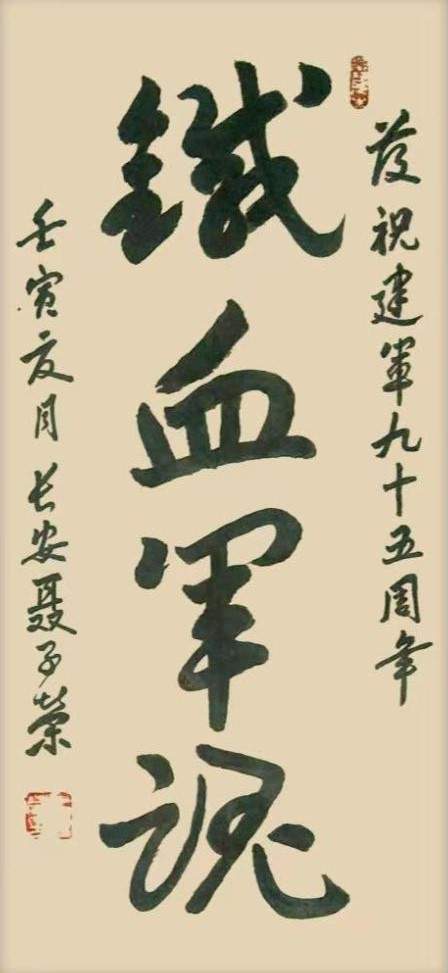 慶祝建軍九十五周年
鐵血軍魂
壬寅夏月长安聂子荣